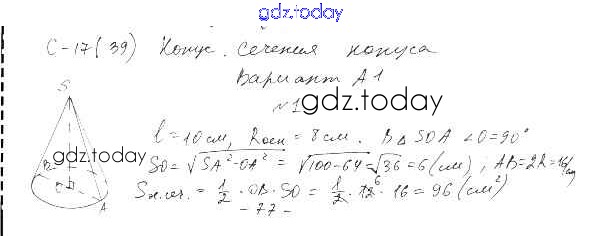 gdz.today
С-17(39) Конус. Сечения конуса
Вариант А1
№1
gdz.today
S
l=10см, Rосн=8см. В △ SOA ∠O=90°
gdz.today
SO=√SA²-OA² = √100-64=√36=6(см), AB=2R=16см
Sо.сеч. = 1/2 · OB · SO = 1/2 · 12 6 · 16 = 96 (см²)
B
O
A
- 77 -